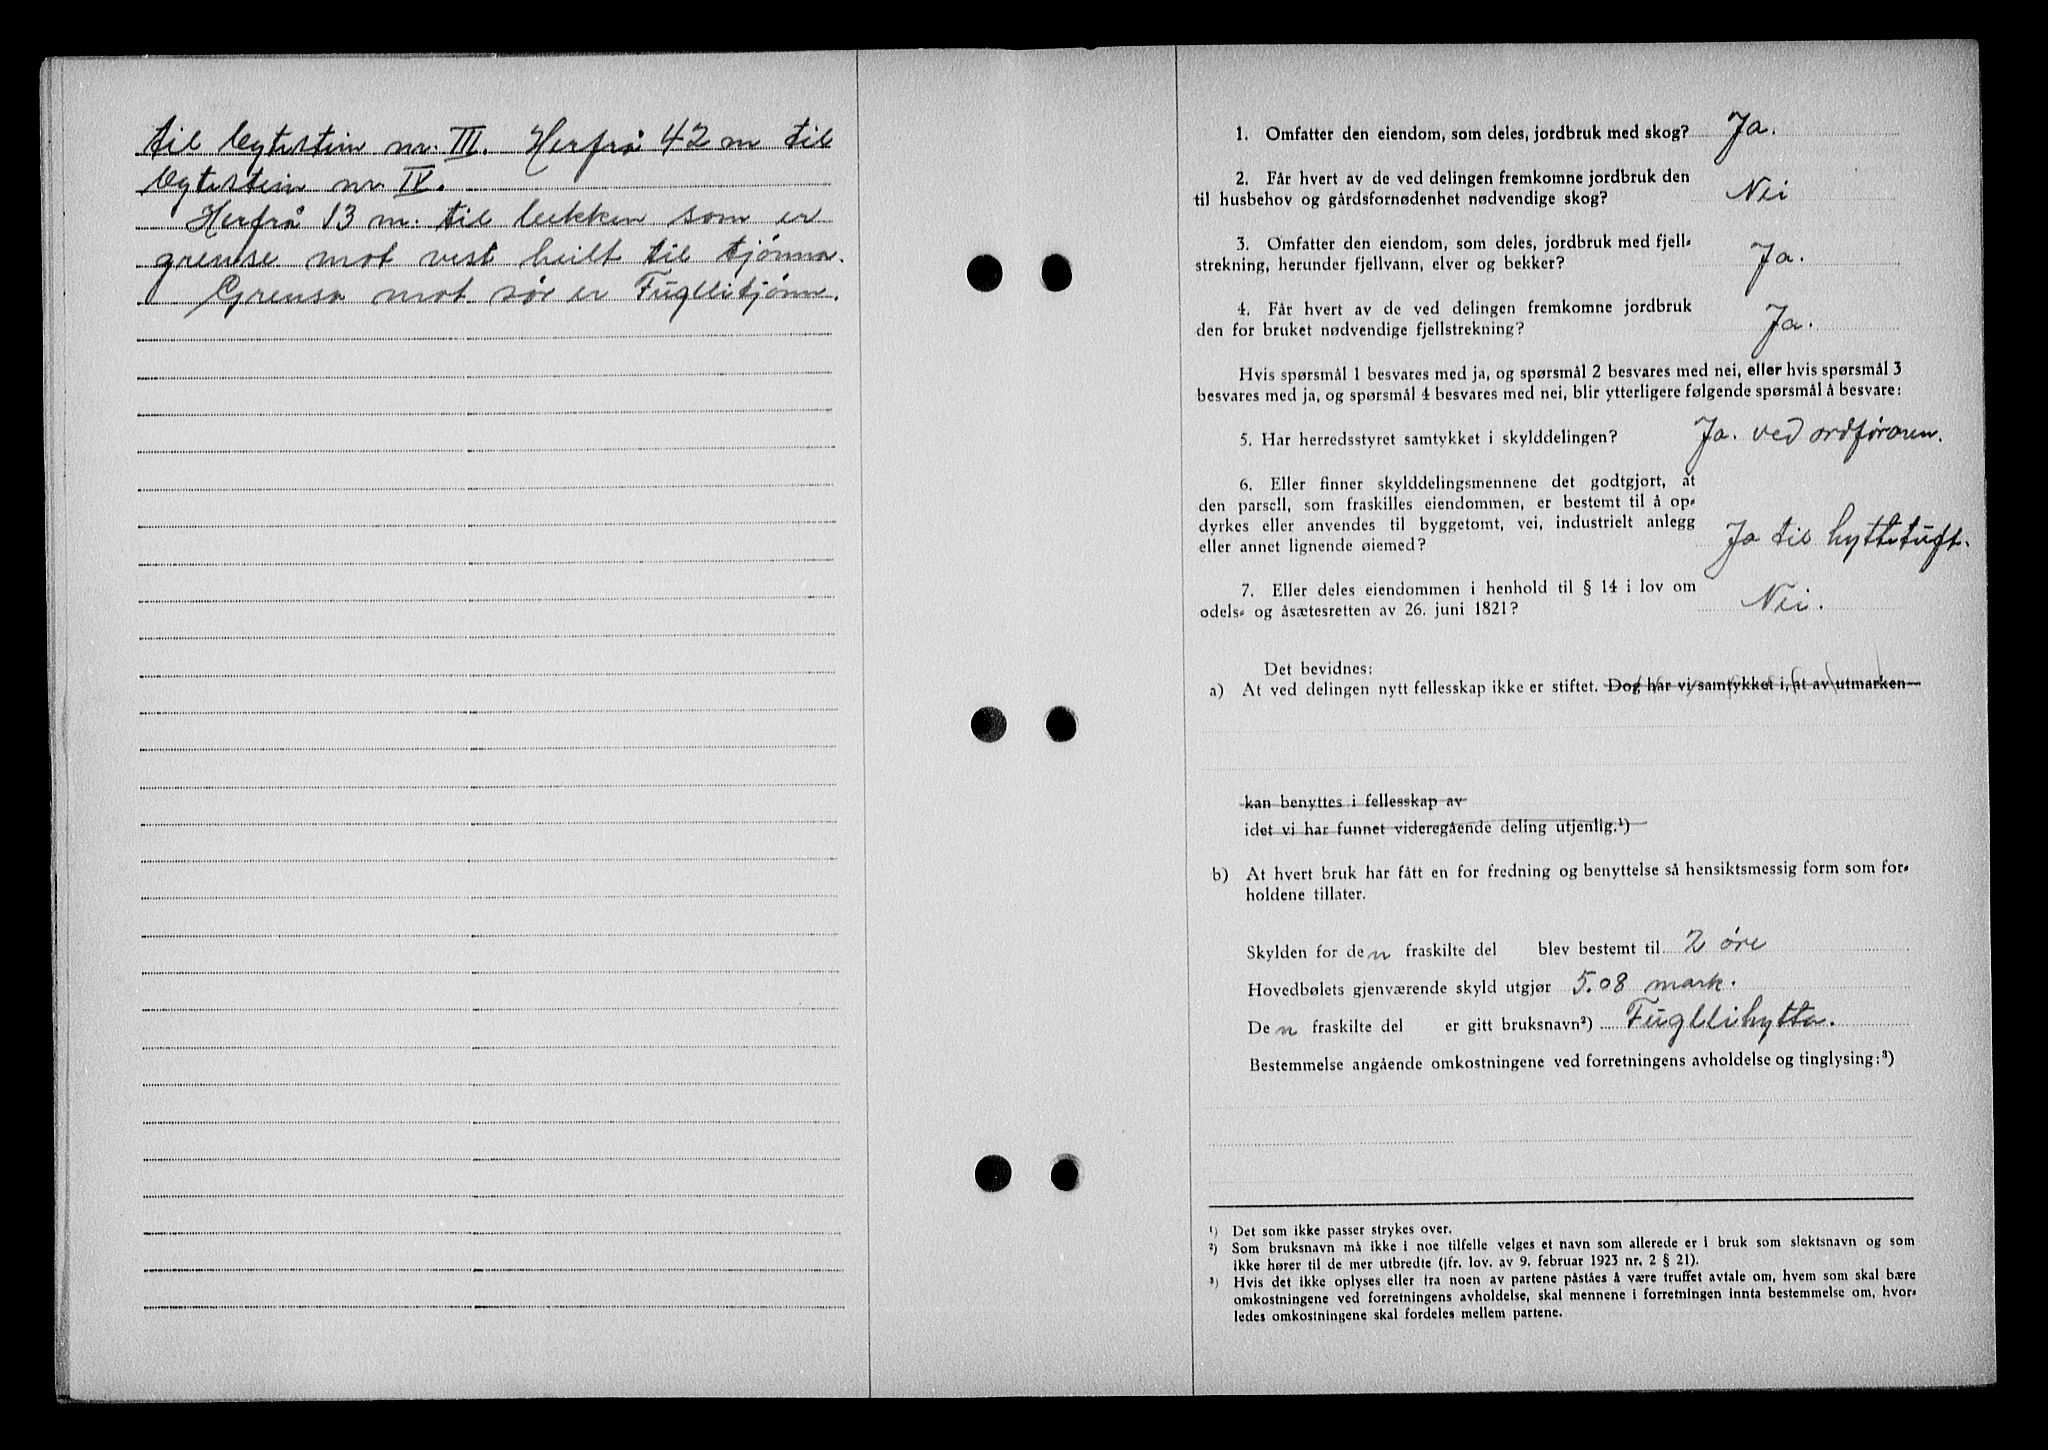 til bytestein nr. III. Herfrå 42 m til
bytestein nr. IV.
Herfrå 13 m. til bekken som er
grense mot vest heilt til tjønna.
Grensa mot sør er Fugllitjønn.
1. Omfatter den eiendom, som deles, jordbruk med skog? Ja.
2. Får hvert av de ved delingen fremkomne jordbruk den
til husbehov og gårdsfornødenhet nødvendige skog? Nei
3. Omfatter den eiendom, som deles, jordbruk med fjell-
strekning, herunder fjellvann, elver og bekker? Ja.
4. Får hvert av de ved delingen fremkomne jordbruk
den for bruket nødvendige fjellstrekning? Ja.
Hvis spørsmål 1 besvares med ja, og spørsmål 2 besvares med nei, eller hvis spørsmål 3
besvares med ja, og spørsmål 4 besvares med nei, blir ytterligere følgende spørsmål å besvare:
5. Har herredsstyret samtykket i skylddelingen? Ja. ved ordføraren.
6. Eller finner skylddelingsmennene det godtgjort, at
den parsell, som fraskilles eiendommen, er bestemt til å op-
dyrkes eller anvendes til byggetomt, vei, industrielt anlegg
eller annet lignende øiemed? Ja til hyttetuft.
7. Eller deles eiendommen i henhold til § 14 i lov om
odels- og åsætesretten av 26. juni 1821? Nei.
Det bevidnes:
a) At ved delingen nytt fellesskap ikke er stiftet. Dog har vi samtykket i, at av utmarken
kan benyttes i fellesskap av
idet vi har funnet videregående deling utjenlig.¹)
b) At hvert bruk har fått en for fredning og benyttelse så hensiktsmessig form som for-
holdene tillater.
Skylden for den fraskilte del blev bestemt til 2 øre
Hovedbølets gjenværende skyld utgjør 5.08 mark.
Den fraskilte del er gitt bruksnavn²) Fugllihytta.
Bestemmelse angående omkostningene ved forretningens avholdelse og tinglysing:³)
¹) Det som ikke passer strykes over.
²) Som bruksnavn må ikke i noe tilfelle velges et navn som allerede er i bruk som slektsnavn og som
ikke hører til de mer utbredte (jfr. lov. av 9. februar 1923 nr. 2 § 21).
³) Hvis det ikke oplyses eller fra noen av partene påståes å være truffet avtale om, hvem som skal bære
omkostningene ved forretningens avholdelse, skal mennene i forretningen innta bestemmelse om, hvor-
ledes omkostningene skal fordeles mellem partene.